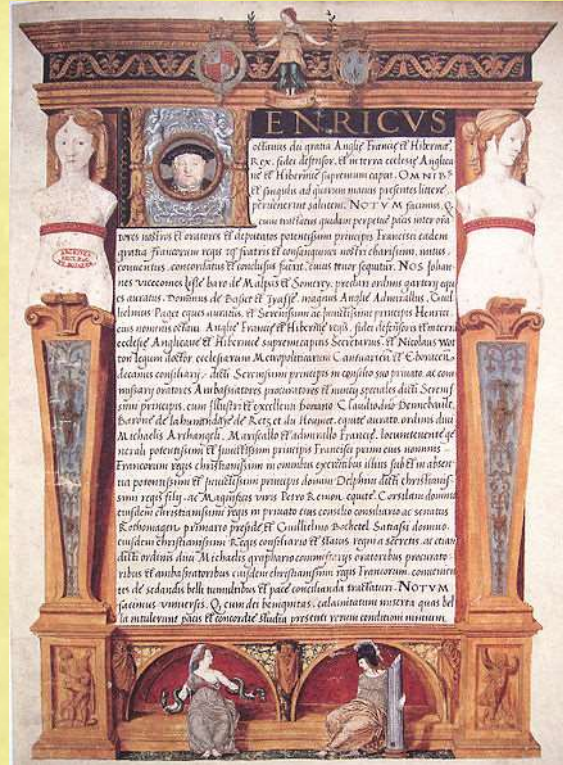 ENRICVS
octauus dei gratia Anglię Francię et Hibernię
Rex, fidei defensor, et in terra ecclesię Anglica
nę et Hibernicę supremum caput. OMNIB9
et singulis ad quorum manus presentes litterę
peruenerint salutem. NOTVM facimus, Q
cum tractatus quidam perpetuę pacis inter ora
tores nostros et oratores et deputatos potentissimi principis Francisci eadem
gratia francorum regis fratris et consanguinei nostri charissimi, initus,
conuentus, concordatus et conclusus fuerit, cuius tenor sequitur. NOS Johan
nes vicecomes Lisle baro de Malpas et Somerey, preclari ordinis garterij equ
es auratus, Dominus de Basset et Tyasse, magnus Anglię Admirallus, Guil
helmus Paget eques auratus, et Serenissimi ac Inuictissimi principis Henrici
eius nominis octaui Anglię Francię et Hibernię regis, fidei defensoris et in terra
ecclesię Anglicanę et Hibernicę supremi capitis Secretarius, et Nicolaus Wot
ton legum doctor ecclesiarum Metropoliticarum Cantuarien et Eboracen
decanus consiliarij dicti Serenissimi principis in consilio suo priuato, ac com
missarij oratores Ambassiatores procuratores et nuncij speciales dicti Serenis
simi principis, cum Illustri et excellenti domino Claudio
Barone de et du Houmet, equite aurato ordinis diui
Michaelis Archangeli, Marescallo et admirallo Francię, locumtenente ge
nerali potentissimi et Inuictissimi principis Francisci primi eius nominis
Francorum regis christianissimi in omnibus exercitibus illius sub et in absen
tia potentissimi et Inuictissimi principis domini Delphini dicti christianis
simi regis filij, ac Magnificis viris Petro Remon equite domino
eiusdem christianissimi regis in priuato eius consilio consiliario ac senatus
Rothomagen primario preside, et Guillielmo Bochetel domino,
eiusdem christianissimi Regis consiliario et status regni a secretis, ac etiam
dicti ordinis diui Michaelis graphario commissarijs oratoribus procurato
ribus et ambassiatoribus eiusdem christianissimi regis Francorum, conuenien
tes de sedandis belli tumultibus et pace concilianda tractaturi. NOTVM
facimus vniuersis, Q cum dei benignitas, calamitatum miserta quas bel
la intulerunt pacis et concordię studia presenti rerum conditioni